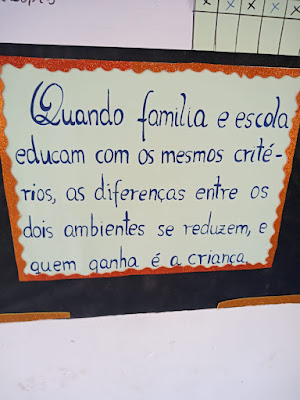 Quando família e escola
educam com os mesmos crité-
rios, as diferenças entre os
dois ambientes se reduzem, e
quem ganha é a criança.